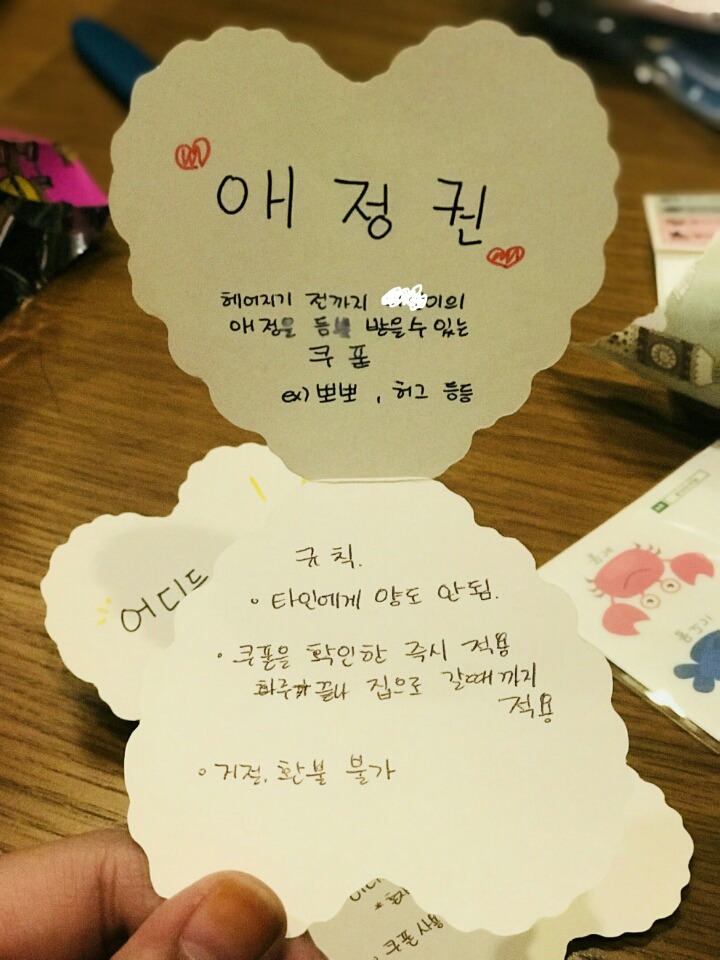 애정권
헤어지기 전까지 이의
애정을 듬뿍 받을수 있는
쿠폰
ex) 뽀뽀, 허그 등등
규칙.
• 타인에게 양도 안됨.
• 쿠폰을 확인한 즉시 적용
하루가 끝나 집으로 갈때까지
적용
• 거절, 환불 불가
어디드
쿠폰 사용